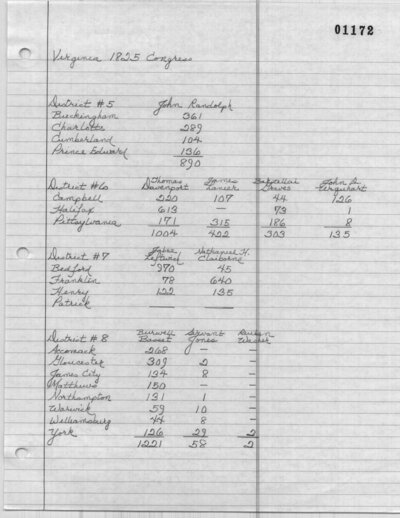 01172
Virginia 1825 Congress
District #5 John Randolph
Buckingham 361
Charlotte 289
Cumberland 104
Prince Edward 136
890
Thomas James John
District #6 Davenport Lanier Urquhart
Campbell 220 107 44 126
Halifax 613 — 73 1
Pittsylvania 171 315 186 8
1004 422 303 135
Jabez Nathaniel H.
District #7 Leftwich Claiborne
Bedford 970 45
Franklin 78 640
Henry 122 135
Patrick
Burwell Servant Reuben
District #8 Basset Jones
Accomack 268 — —
Gloucester 309 2 —
James City 134 8 —
Matthews 150 — —
Northampton 131 1 —
Warwick 59 10 —
Williamsburg 44 8 —
York 126 29 2
1221 58 2